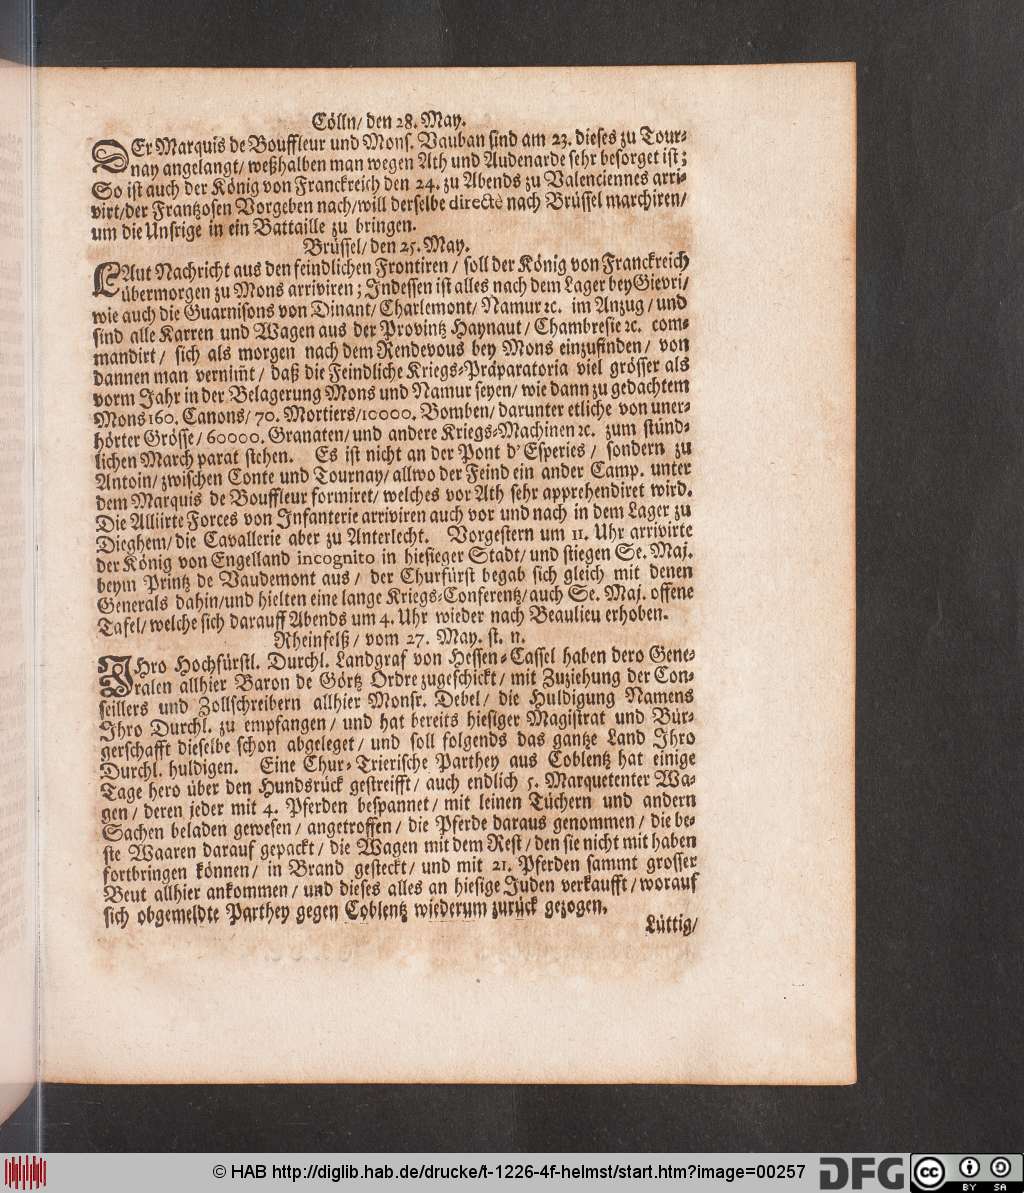 Cölln/ den 28. May.
DEr Marquis de Bouffleur und Mons. Vauban sind am 23. dieses zu Tour-
nay angelangt/ weßhalben man wegen Ath und Audenarde sehr besorget ist;
So ist auch der König von Franckreich den 24. zu Abends zu Valenciennes arri-
virt/der Frantzosen Vorgeben nach/will derselbe directè nach Brüssel marchiren/
um die Unsrige in ein Battaille zu bringen.
Brüssel/ den 25. May.
LAut Nachricht aus den feindlichen Frontiren / soll der König von Franckreich
übermorgen zu Mons arriviren; Indessen ist alles nach dem Lager bey Gievri/
wie auch die Guarnisons von Dinant/ Charlemont/ Namur ꝛc. im Anzug/ und
sind alle Karren und Wagen aus der Provintz Haynaut/ Chambresie ꝛc. com-
mandirt/ sich als morgen nach dem Rendevous bey Mons einzufinden/ von
dannen man vernim̃t/ daß die Feindliche Kriegs-Präparatoria viel grösser als
vorm Jahr in der Belagerung Mons und Namur seyen/ wie dann zu gedachtem
Mons 160. Canons/ 70. Mortiers/10000. Bomben/ darunter etliche von uner-
hörter Grösse/ 60000. Granaten/ und andere Kriegs-Machinen ꝛc. zum stünd-
lichen March parat stehen. Es ist nicht an der Pont d' Esperies / sondern zu
Antoin/ zwischen Conte und Tournay/ allwo der Feind ein ander Camp. unter
dem Marquis de Bouffleur formiret/ welches vor Ath sehr apprehendiret wird.
Die Alliirte Forces von Infanterie arriviren auch vor und nach in dem Lager zu
Dieghem/ die Cavallerie aber zu Anterlecht. Vorgestern um 11. Uhr arrivirte
der König von Engelland incognito in hiesieger Stadt/ und stiegen Se. Maj.
beym Printz de Vaudemont aus / der Churfürst begab sich gleich mit denen
Generals dahin/und hielten eine lange Kriegs-Conferentz/auch Se. Maj. offene
Tafel/ welche sich darauff Abends um 4. Uhr wieder nach Beaulieu erhoben.
Rheinfelß / vom 27. May. st. n.
IHro Hochfürstl. Durchl. Landgraf von Hessen-Cassel haben dero Gene-
ralen allhier Baron de Görtz Ordre zugeschickt/ mit Zuziehung der Con-
seillers und Zollschreibern allhier Monsr. Debel/ die Huldigung Namens
Ihro Durchl. zu empfangen/ und hat bereits hiesiger Magistrat und Bür-
gerschafft dieselbe schon abgeleget/ und soll folgends das gantze Land Ihro
Durchl. huldigen. Eine Chur-Trierische Parthey aus Coblentz hat einige
Tage hero über den Hundsrück gestreifft/ auch endlich 5. Marquetenter Wa-
gen/ deren jeder mit 4. Pferden bespannet/ mit leinen Tüchern und andern
Sachen beladen gewesen/ angetroffen/ die Pferde daraus genommen/ die be-
ste Waaren darauf gepackt/ die Wagen mit dem Rest/ den sie nicht mit haben
fortbringen können/ in Brand gesteckt/ und mit 21. Pferden sammt grosser
Beut allhier ankommen/ und dieses alles an hiesige Juden verkaufft/ worauf
sich obgemeldte Parthey gegen Coblentz wiederum zurück gezogen.
Lüttig/
© HAB http://diglib.hab.de/drucke/t-1226-4f-helmst/start.htm?image=00257
DFG
cc
BY SA